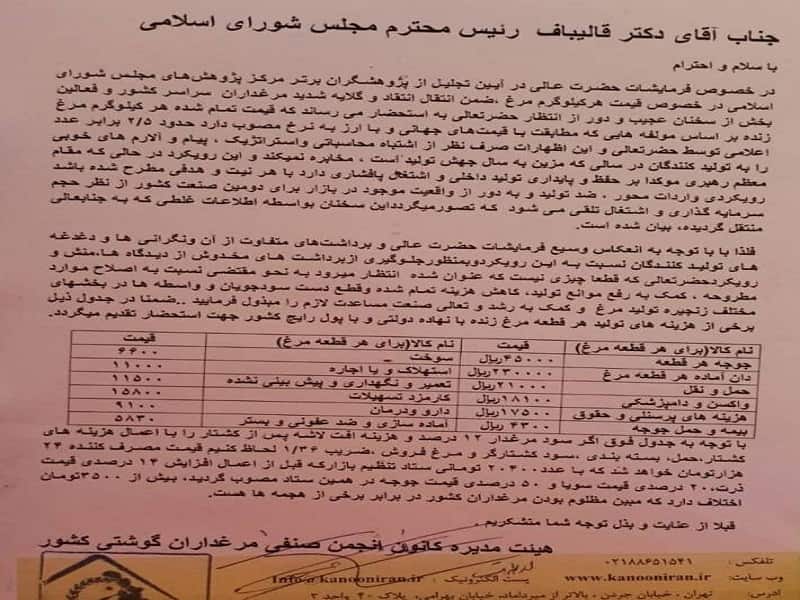 جناب آقای دکتر قالیباف رئیس محترم مجلس شورای اسلامی
با سلام و احترام
در خصوص فرمایشات حضرت عالی در آیین تجلیل از پژوهشگران برتر مرکز پژوهش‌های مجلس شورای
اسلامی در خصوص قیمت هرکیلوگرم مرغ ،ضمن انتقال انتقاد و گلایه شدید مرغداران سراسر کشور و فعالین
بخش از سخنان عجیب و دور از انتظار حضرتعالی به استحضار می رساند که قیمت تمام شده هر کیلوگرم مرغ
زنده بر اساس مولفه هایی که مطابقت با قیمت‌های جهانی و با ارز به نرخ مصوب دارد حدود ۲/۵ برابر عدد
اعلامی توسط حضرتعالی و این اظهارات صرف نظر از اشتباه محاسباتی واستراتژیک ، پیام و آلارم های خوبی
را به تولید کنندگان در سالی که مزین به سال جهش تولید است ، مخابره نمیکند و این رویکرد در حالی که مقام
معظم رهبری موکدا بر حفظ و پایداری تولید داخلی و اشتغال پافشاری دارد با هر نیت و هدفی مطرح شده باشد
رویکردی واردات محور ، ضد تولید و به دور از واقعیت موجود در بازار برای دومین صنعت کشور از نظر حجم
سرمایه گذاری و اشتغال تلقی می شود که تصورمیگردداین سخنان بواسطه اطلاعات غلطی که به جنابعالی
منتقل گردیده، بیان شده است.
فلذا با با توجه به انعکاس وسیع فرمایشات حضرت عالی و برداشت‌های متفاوت از آن ونگرانی ها و دغدغه
های تولید کنندگان نسبت به این رویکردوبمنظورجلوگیری ازبرداشت های مخدوش از دیدگاه ها،منش و
رویکردحضرتعالی که قطعا چیزی نیست که عنوان شده انتظار میرود به نحو مقتضی نسبت به اصلاح موارد
مطروحه ، کمک به رفع موانع تولید، کاهش هزینه تمام شده وقطع دست سودجویان و واسطه ها در بخشهای
مختلف زنجیره تولید مرغ و کمک به رشد و تعالی صنعت مساعدت لازم را مبذول فرمایید ..ضمنا در جدول ذیل
برخی از هزینه های تولید هر قطعه مرغ زنده با نهاده دولتی و با پول رایج کشور جهت استحضار تقدیم میگردد.
نام کالا(برای هر قطعه مرغ) قیمت نام کالا(برای هر قطعه مرغ) قیمت
جوجه هر قطعه ۴۵۰۰۰ریال سوخت ۶۶۰۰
دان آماده هر قطعه مرغ ۲۳۰۰۰۰ریال استهلاک و یا اجاره ۱۱۰۰۰
حمل و نقل ۲۱۰۰۰ریال تعمیر و نگهداری و پیش بینی نشده ۱۱۵۰۰
واکسن و دامپزشکی ۱۸۱۰۰ریال کارمزد تسهیلات ۱۵۸۰۰
هزینه های پرسنلی و حقوق ۱۷۵۰۰ریال دارو ودرمان ۹۱۰۰
بیمه و حمل جوجه ۴۳۰۰ ریال آماده سازی و ضد عفونی و بستر ۵۸۳۰
با توجه به جدول فوق اگر سود مرغدار ۱۲ درصد و هزینه افت لاشه پس از کشتار را با اعمال هزینه های
کشتار،حمل، بسته بندی ،سود کشتارگر و مرغ فروش ،ضریب ۱/۳۶ لحاظ کنیم قیمت مصرف کننده ۲۴
هزارتومان خواهد شد که با عدد۲۰۴۰۰ تومانی ستاد تنظیم بازارکه قبل از اعمال افزایش ۱۴ درصدی قیمت
ذرت، ۲۰ درصدی قیمت سویا و ۵۰ درصدی قیمت جوجه در همین ستاد مصوب گردید، بیش از ۳۵۰۰تومان
اختلاف دارد که مبین مظلوم بودن مرغداران کشور در برابر برخی از هجمه ها هست.
قبلا از عنایت و بذل توجه شما متشکریم.
هیئت مدیره کانون انجمن صنفی مرغداران گوشتی کشور
تلفکس : ۰۲۱۸۸۶۵۱۵۴۱
وب سایت: www.kanooniran.ir پست الکترونیک : Info@kanooniran.ir
آدرس: تهران ، خیابان جردن ، بالاتر از میرداماد، خیابان بهرامی، پلاک ۴۰ واحد ۳